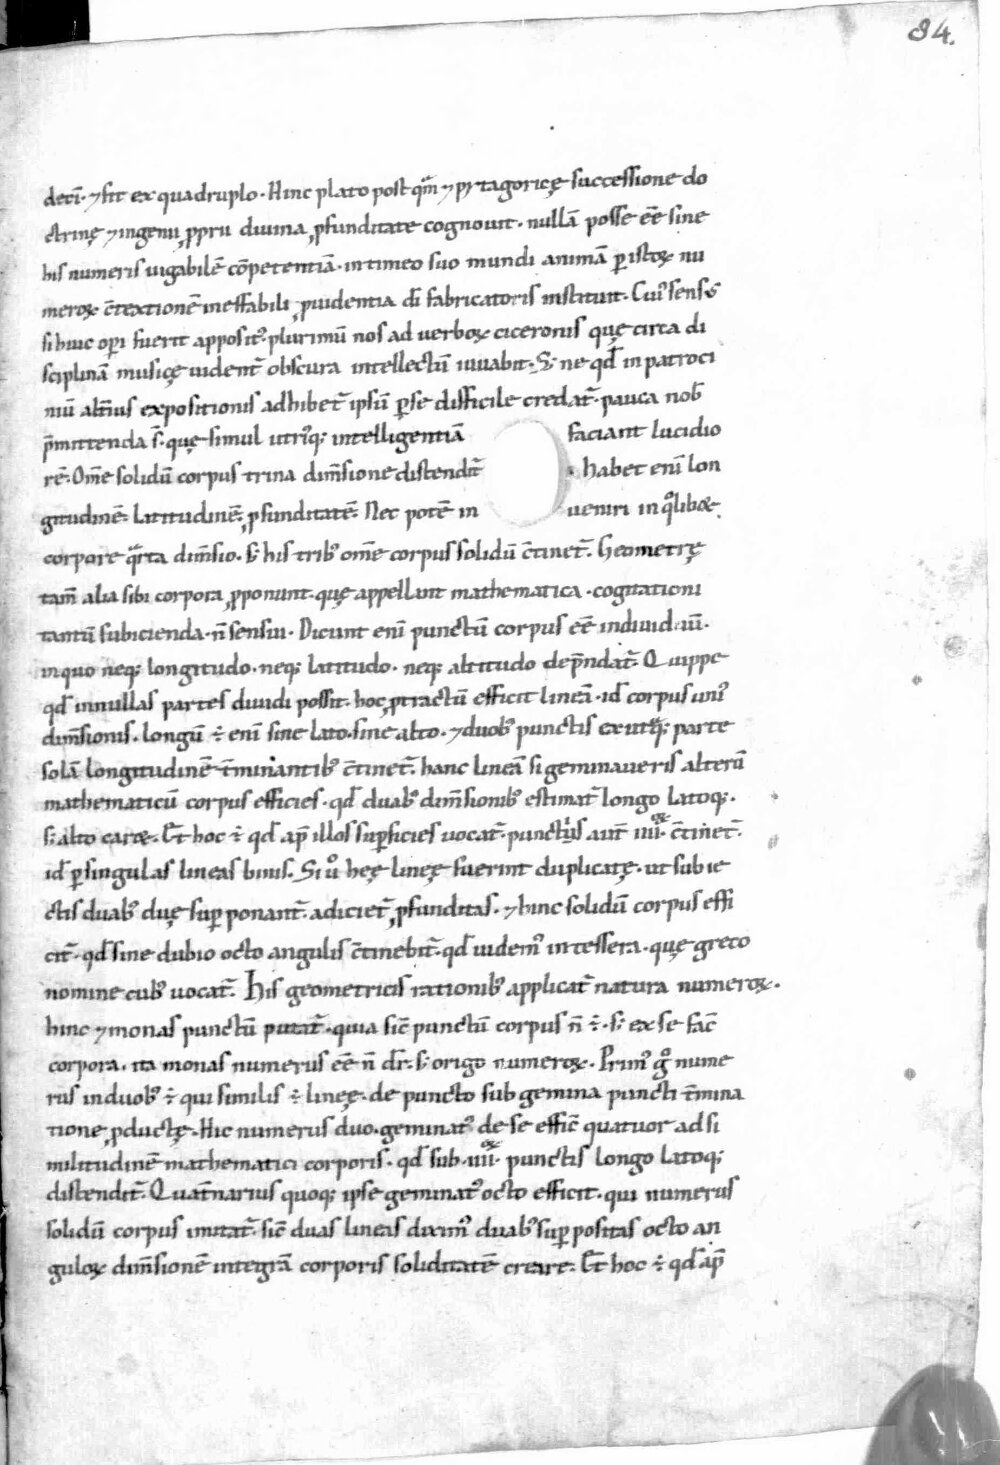 84.
decī. ⁊ fit ex quadruplo. Hinc plato post qͣm̄ ⁊ pytagoricę successione do
ctrinę ⁊ ingenii ꝓprii diuina ꝓfunditate cognouit. nullā posse eē sine
his numeris iugabilē cōpetentiā. in timeo suo mundi animā ꝑ istoꝝ nu
meroꝝ ꝯtextionē ineffabili ꝓuidentia dī fabricatoris instituit. Cuiꝰ sensꝰ
si huic oꝑi fuerit appositꝰ plurimū nos ad uerboꝝ ciceronis quę circa di
sciplinā musicę uident̄ obscura intellectū iuuabit. S; ne qđ in patroci
niū alt̄ius expositionis adhibet̄ ipsū ꝑ se difficile credat̄. pauca nob̄
p̄mittenda s̄. quę simul utriꝰq; intelligentiā faciant lucidio
rē. Om̄e solidū corpus trina dim̄sione distendit̄. habet eni̅ lon
gitudinē. Latitudinē. ꝓfunditatē. Nec potē in ueniri in qͦlibꝫ
corpore qͣrta dim̄sio. s; his tribꝰ om̄e corpus solidū ꝯtinet̄. Geometrę
tam̄ alia sibi corpora ꝓponunt. quę appellant mathematica. cogitationi
tantū subicienda. n̄ sensui. Dicunt eni̅ punctū corpus eē indiuiduū.
in quo neq; longitudo. neq; latitudo. neq; altitudo dep̄ndat̄. Quippe
qđ in nullas partes diuidi possit. hoc ꝓtractū efficit lineā. id corpus uniꝰ
dim̄sionis. longū ÷ eni̅ sine lato. sine alto. ⁊ duobꝰ punctis ex utraq; parte
solā longitudinē t̄minantibꝰ ꝯtinet̄. hanc lineā si geminaueris alterū
mathematicū corpus efficies. qđ duabꝰ dim̄sionibꝰ estimat̄ longo latoq;.
s; alto caret. Et hoc ÷ qđ ap̄ illos suꝑficies uocat̄. punctis aut̄ .iiii. ꝯtinet̄.
id ꝑ singulas lineas binis. Si uͦ hęę linęę fuerint duplicatę. ut subie
ctis duabꝰ duę suꝑponant̄. adiciet̄ ꝓfunditas. ⁊ hinc solidū corpus effi
cit̄. qđ sine dubio octo angulis ꝯtinebit̄. qđ uidemꝰ in tessera. quę greco
nomine cubꝰ uocat̄. His geometricis rationibꝰ applicat̄ natura numeroꝝ.
hinc ⁊ monas punctū putat̄. quia sic̄ punctū corpus n̄ ÷. s; ex se fac̄
corpora. ita monas numerus eē n̄ dr̄. s; origo numeroꝝ. Primꝰ gͦ nume
rus in duobꝰ ÷ qui similis ÷ linęę. de puncto sub gemina puncti t̄mina
tione ꝓductę. Hic numerus duo. geminatꝰ de se effic̄ quatuor ad si
militudinē mathematici corporis. qđ sub .iiii. punctis longo latoq;
distendit̄. Quat̄narius quoq; ipse geminatꝰ octo efficit. qui numerus
solidū corpus imitat̄. sic̄ duas lineas diximꝰ duabꝰ suꝑpositas octo an
guloꝝ dim̄sionē integrā corporis soliditatē creare. Et hoc ÷ qđ ap̄